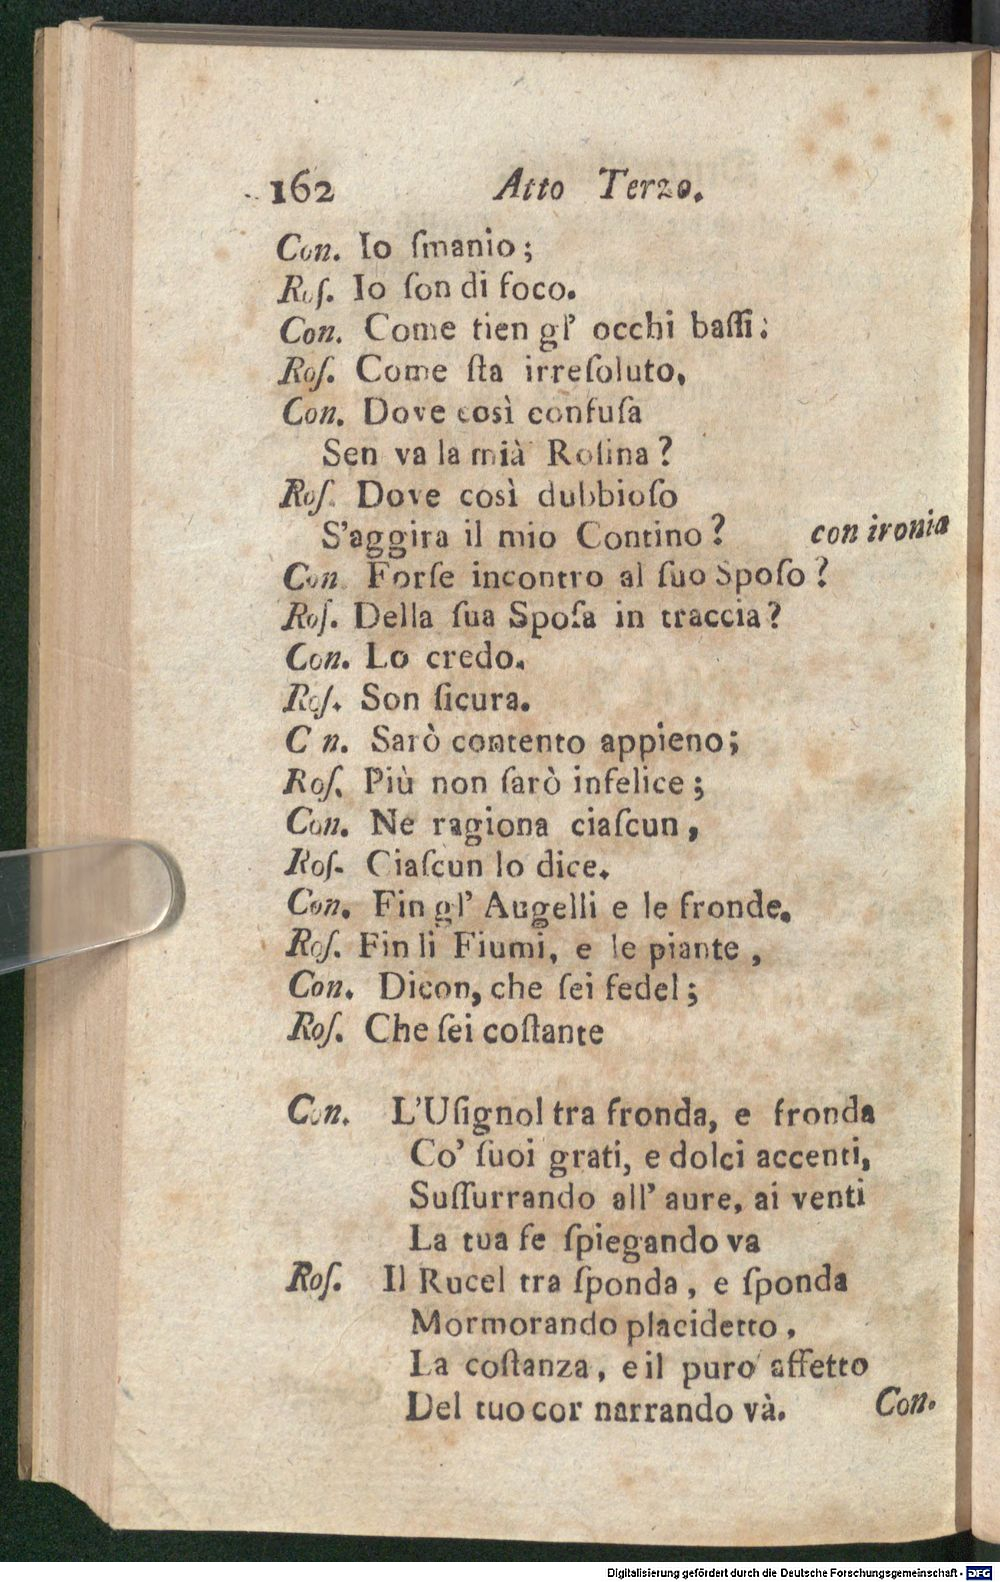 162 Atto Terzo.
Con. Io ſmanio;
Roſ. Io ſon di foco.
Con. Come tien gl' occhi baſſi:
Roſ. Come ſta irreſoluto,
Con. Dove così confuſa
Sen va la mià Roſina?
Roſ. Dove così dubbioſo
S'aggira il mio Contino? con ironia
Con. Forſe incontro al ſuo Spoſo?
Roſ. Della ſua Spoſa in traccia?
Con. Lo credo.
Roſ. Son ſicura.
C n. Sarò contento appieno;
Roſ. Più non ſarò infelice;
Con. Ne ragiona ciaſcun,
Roſ. Ciaſcun lo dice.
Con. Fin gl' Augelli e le fronde.
Roſ. Fin li Fiumi, e le piante,
Con. Dicon, che ſei fedel;
Roſ. Che ſei coſtante
Con. L'Uſignol tra fronda, e fronda
Co' ſuoi grati, e dolci accenti,
Suſſurrando all' aure, ai venti
La tua fe ſpiegando va
Roſ. Il Rucel tra ſponda, e ſponda
Mormorando placidetto,
La coſtanza, e il puro affetto
Del tuo cor narrando và. Con.
Digitalisierung gefördert durch die Deutsche Forschungsgemeinschaft - DFG